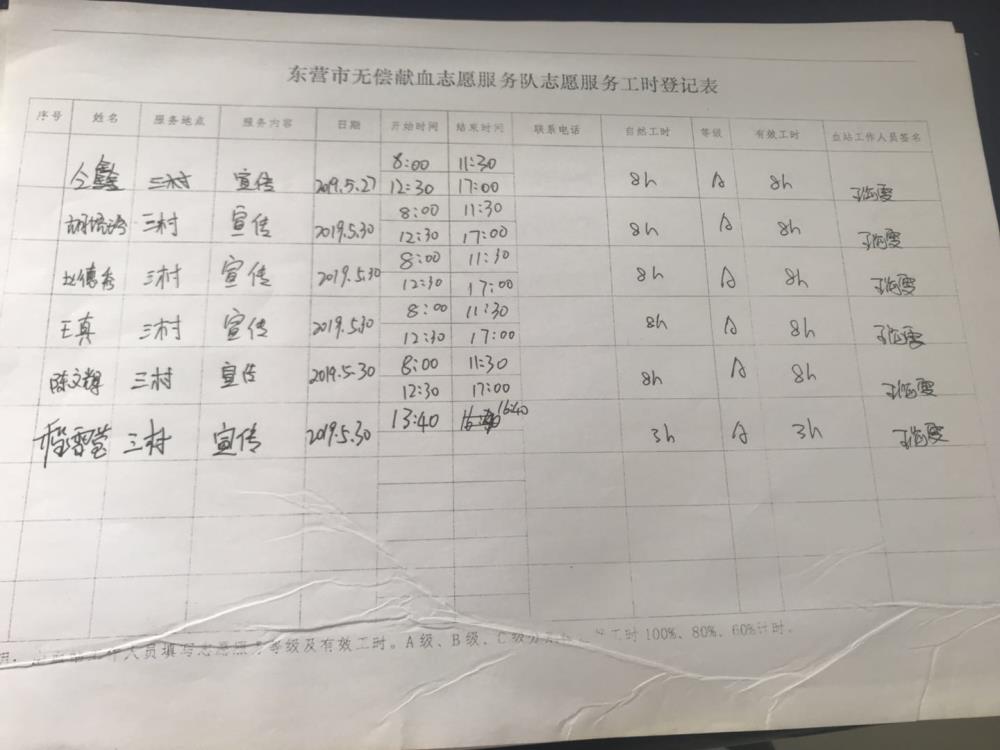 东营市无偿献血志愿服务队志愿服务工时登记表
序号 姓名 服务地点 服务内容 日期 开始时间 结束时间 联系电话 自然工时 等级 有效工时 血站工作人员签名
8:00 11:30
三村 宣传 2019.5.27 12:30 17:00 8h A 8h
8:00 11:30
三村 宣传 2019.5.30 12:30 17:00 8h A 8h
8:00 11:30
赵德秀 三村 宣传 2019.5.30 12:30 17:00 8h A 8h
8:00 11:30
王真 三村 宣传 2019.5.30 12:30 17:00 8h A 8h
8:00 11:30
陈文辉 三村 宣传 2019.5.30 12:30 17:00 8h A 8h
三村 宣传 2019.5.30 13:40 16:40 3h A 3h
人员填写志愿服务等级及有效工时。A级、B级、C级分别按 工时100%、80%、60%计时。